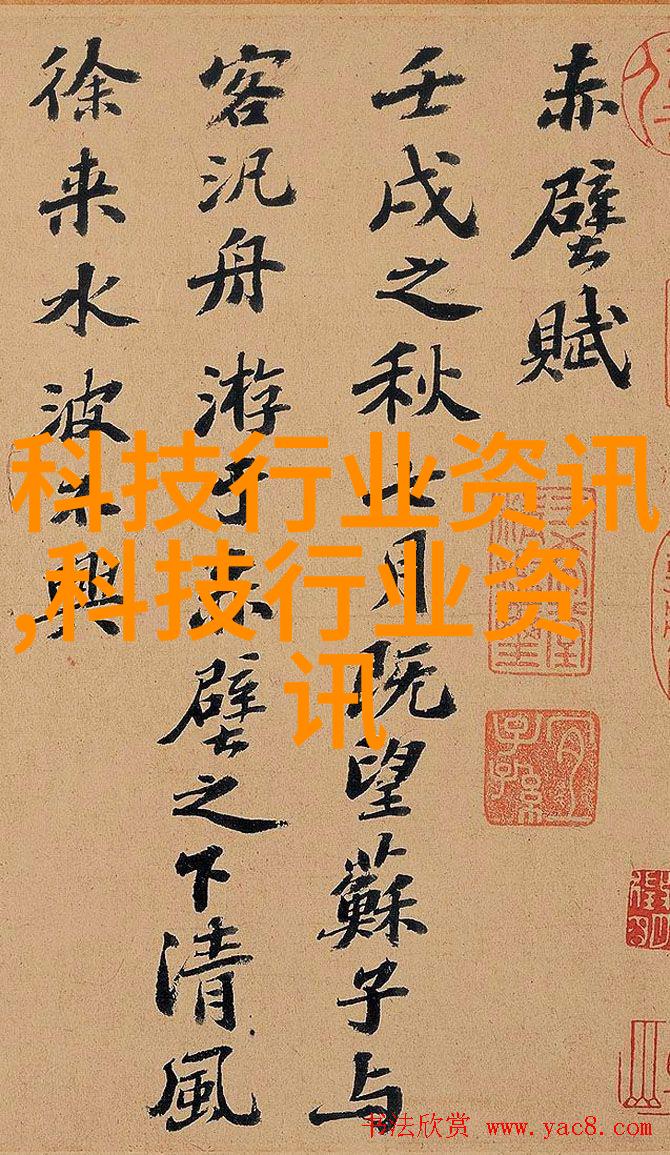 赤壁賦
壬戌之秋七月既望蘇子与
客汎舟游于赤壁之下清風
徐来水波不興
科技行业资讯
,科技行业资
讯
书法欣赏 www.yac8.com